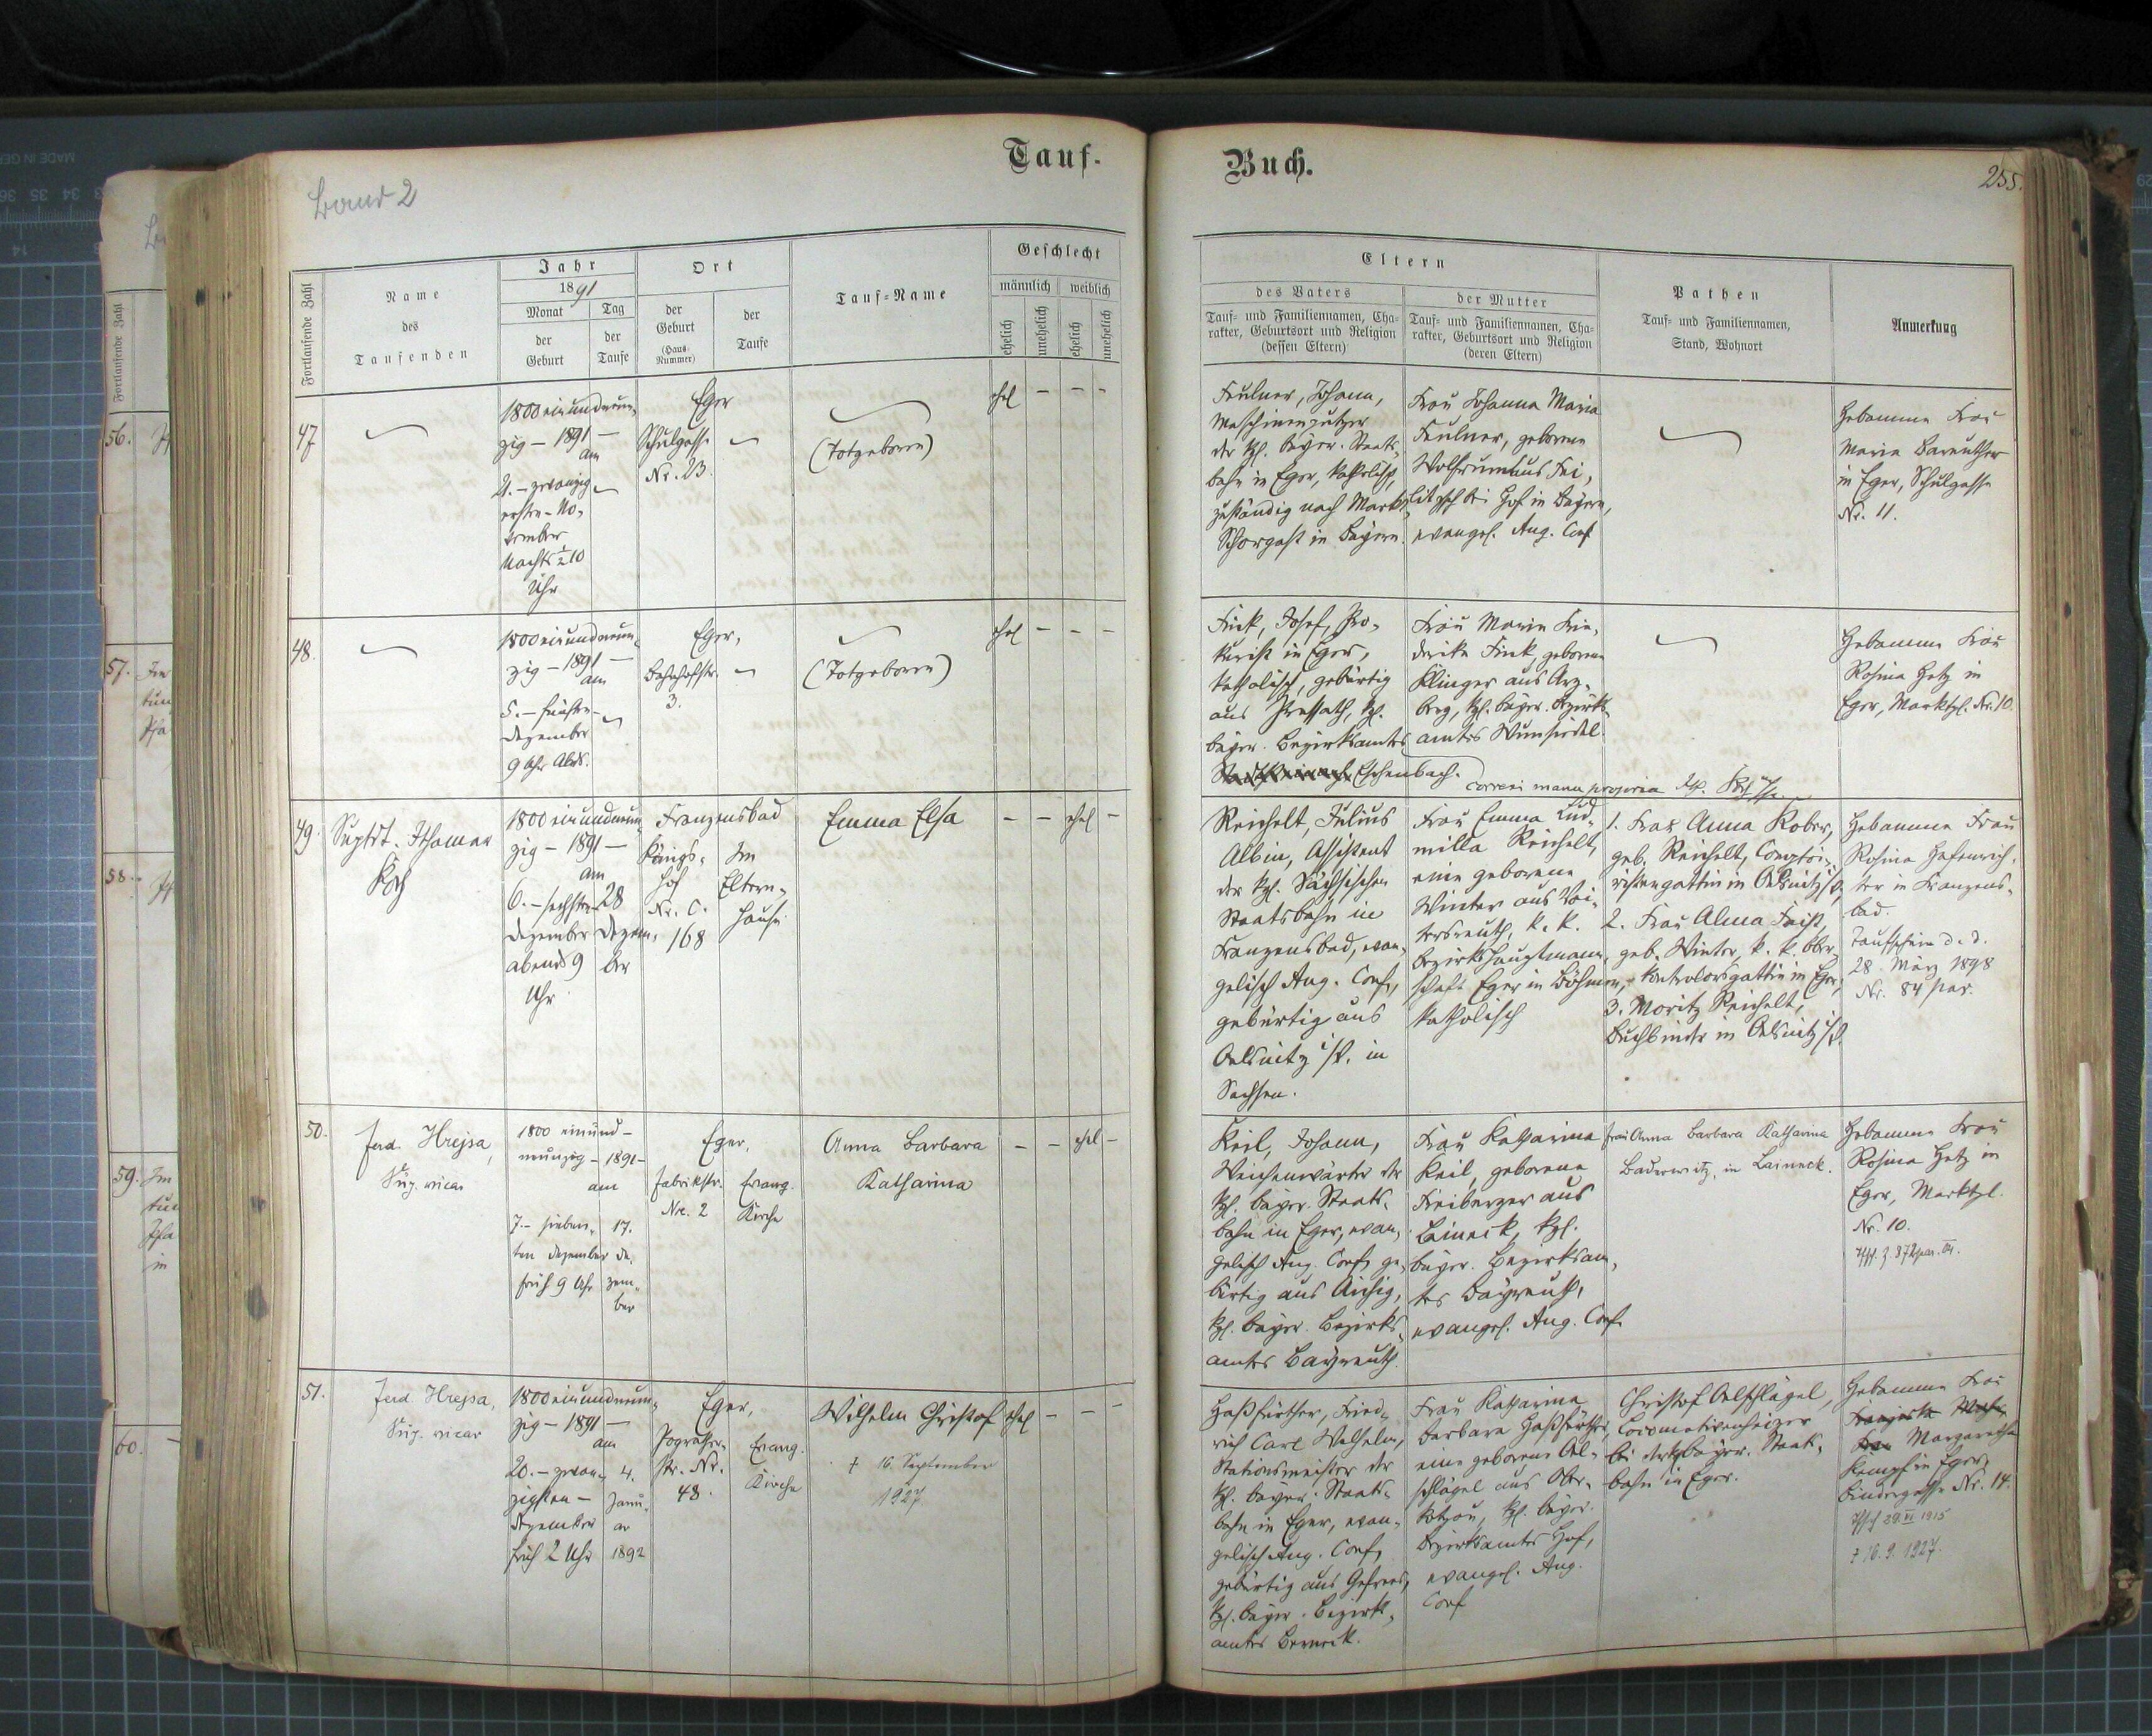 Band 2
Tauf-
Buch.
255.
Fortlaufende Zahl
Name
des
Taufenden
Jahr
1891
Monat
der
Geburt
Tag
der
Taufe
Ort
der
Geburt
(Haus-
Nummer)
der
Taufe
Tauf-Name
Geschlecht
männlich
weiblich
ehelich
unehelich
ehelich
unehelich
Eltern
des Vaters
Tauf- und Familiennamen, Cha-
rakter, Geburtsort und Religion
(dessen Eltern)
der Mutter
Tauf- und Familiennamen, Cha-
rakter, Geburtsort und Religion
(deren Eltern)
Pathen
Tauf- und Familiennamen,
Stand, Wohnort
Anmerkung
47
1800 einundneun-
zig – 1891 –
am
21. – zwanzig-
ersten – No-
vember
Nachts ½ 10
Uhr
Eger
Schulgasse
Nr. 23.
(Totgeboren)
ehel – – –
Feulner, Johann,
Maschinenputzer
der kgl. bayer. Staats-
bahn in Eger, katholisch,
zuständig nach Markt
Schorgast in Bayern.
Frau Johanna Maria
Feulner, geborene
Wolfrum aus Fei-
litzsch bei Hof in Bayern,
evangel. Aug. Conf
Hebamme Frau
Maria Bareuther
in Eger, Schulgasse
Nr. 11.
48.
1800 einundneun-
zig – 1891 –
am
5. – fünften –
Dezember
9 Uhr Abds.
Eger,
Bahnhofstr.
3.
(Totgeboren)
ehel – – –
Fink, Josef, Pro-
kurist in Eger,
katholisch, gebürtig
aus Pressath, kgl.
bayer. Bezirksamtes
Eschenbach.
Frau Maria Frie-
derike Fink, geborene
Klinger aus Arz-
berg, kgl. bayer. Bezirks-
amtes Wunsiedel.
correxi manu propria
Hebamme Frau
Rosina Hetz in
Eger, Marktpl. Nr. 10.
49.
Suptdt. Ithamar
Koch
1800 einundneun-
zig – 1891 –
am
6. – sechsten
Dezember
abends 9
Uhr
28
Dezem-
ber
Franzensbad
Königs-
hof
Nr. C.
168
Im
Eltern-
hause
Emma Elsa
– – ehel –
Reichelt, Julius
Albin, Assistent
der kgl. Sächsischen
Staatsbahn in
Franzensbad, evan-
gelisch Aug. Conf.,
gebürtig aus
Oelsnitz i/V. in
Sachsen.
Frau Emma Lud-
milla Reichelt,
eine geborene
Winter aus Voi-
tersreuth, k. k.
Bezirkshauptmann-
schaft Eger in Böhmen,
katholisch
1. Frau Anna Kober,
geb. Reichelt, Comptoi-
ristengattin in Oelsnitz i/V.
2. Frau Alma Faist,
geb. Winter, k. k. Ober-
kontrolorsgattin in Eger,
3. Moritz Reichelt,
Buchbinder in Oelsnitz i/V.
Hebamme Frau
Rosina Hafenrich-
ter in Franzens-
bad.
Taufschein d. d.
28. März 1898
Nr. 84 par.
50.
Ferd. Hrejsa,
Sup. vicar
1800 einund-
neunzig – 1891 –
am
7. – sieben-
ten Dezember
früh 9 Uhr
17.
De-
zem-
ber
Eger,
Fabrikstr.
Nr. 2
Evang.
Kirche
Anna Barbara
Katharina
– – ehel –
Keil, Johann,
Weichenwärter der
kgl. bayer. Staats-
bahn in Eger, evan-
gelisch Aug. Conf. ge-
bürtig aus
kgl. bayer. Bezirks-
amtes Bayreuth.
Frau Katharina
Keil, geborene
Freiberger aus
Laineck, kgl.
bayer. Bezirksam-
tes Bayreuth,
evangel. Aug. Conf.
Frau Anna Barbara Katharina
in Laineck.
Hebamme Frau
Rosina Hetz in
Eger, Marktpl.
Nr. 10.
51.
Ferd. Hrejsa,
Sup. vicar
1800 einundneun-
zig – 1891 –
am
20. – zwan-
zigsten –
Dezember
früh 2 Uhr
4.
Janu-
ar
1892
Eger,
Pograther-
str. Nr.
48.
Evang.
Kirche
Wilhelm Christof
† 16. September
1927
ehel – – –
Haßfürther, Fried-
rich Carl Wilhelm,
Stationsmeister der
kgl. bayer. Staats-
bahn in Eger, evan-
gelisch Aug. Conf,
gebürtig aus Gefrees,
kgl. bayer. Bezirks-
amtes Berneck.
Frau Katharina
Barbara Haßfürther
eine geborene Oel-
schlägel aus Ober-
kotzau, kgl. bayer.
Bezirksamtes Hof,
evangel. Aug.
Conf
Christof Oelschlägel,
Locomotivenheizer
bei der kgl. bayer. Staats-
bahn in Eger.
Hebamme Frau
Margaretha
Kempf in Eger,
Bindergasse Nr. 14.
† 16. 9. 1927.
56.
57.
58.
59.
60.